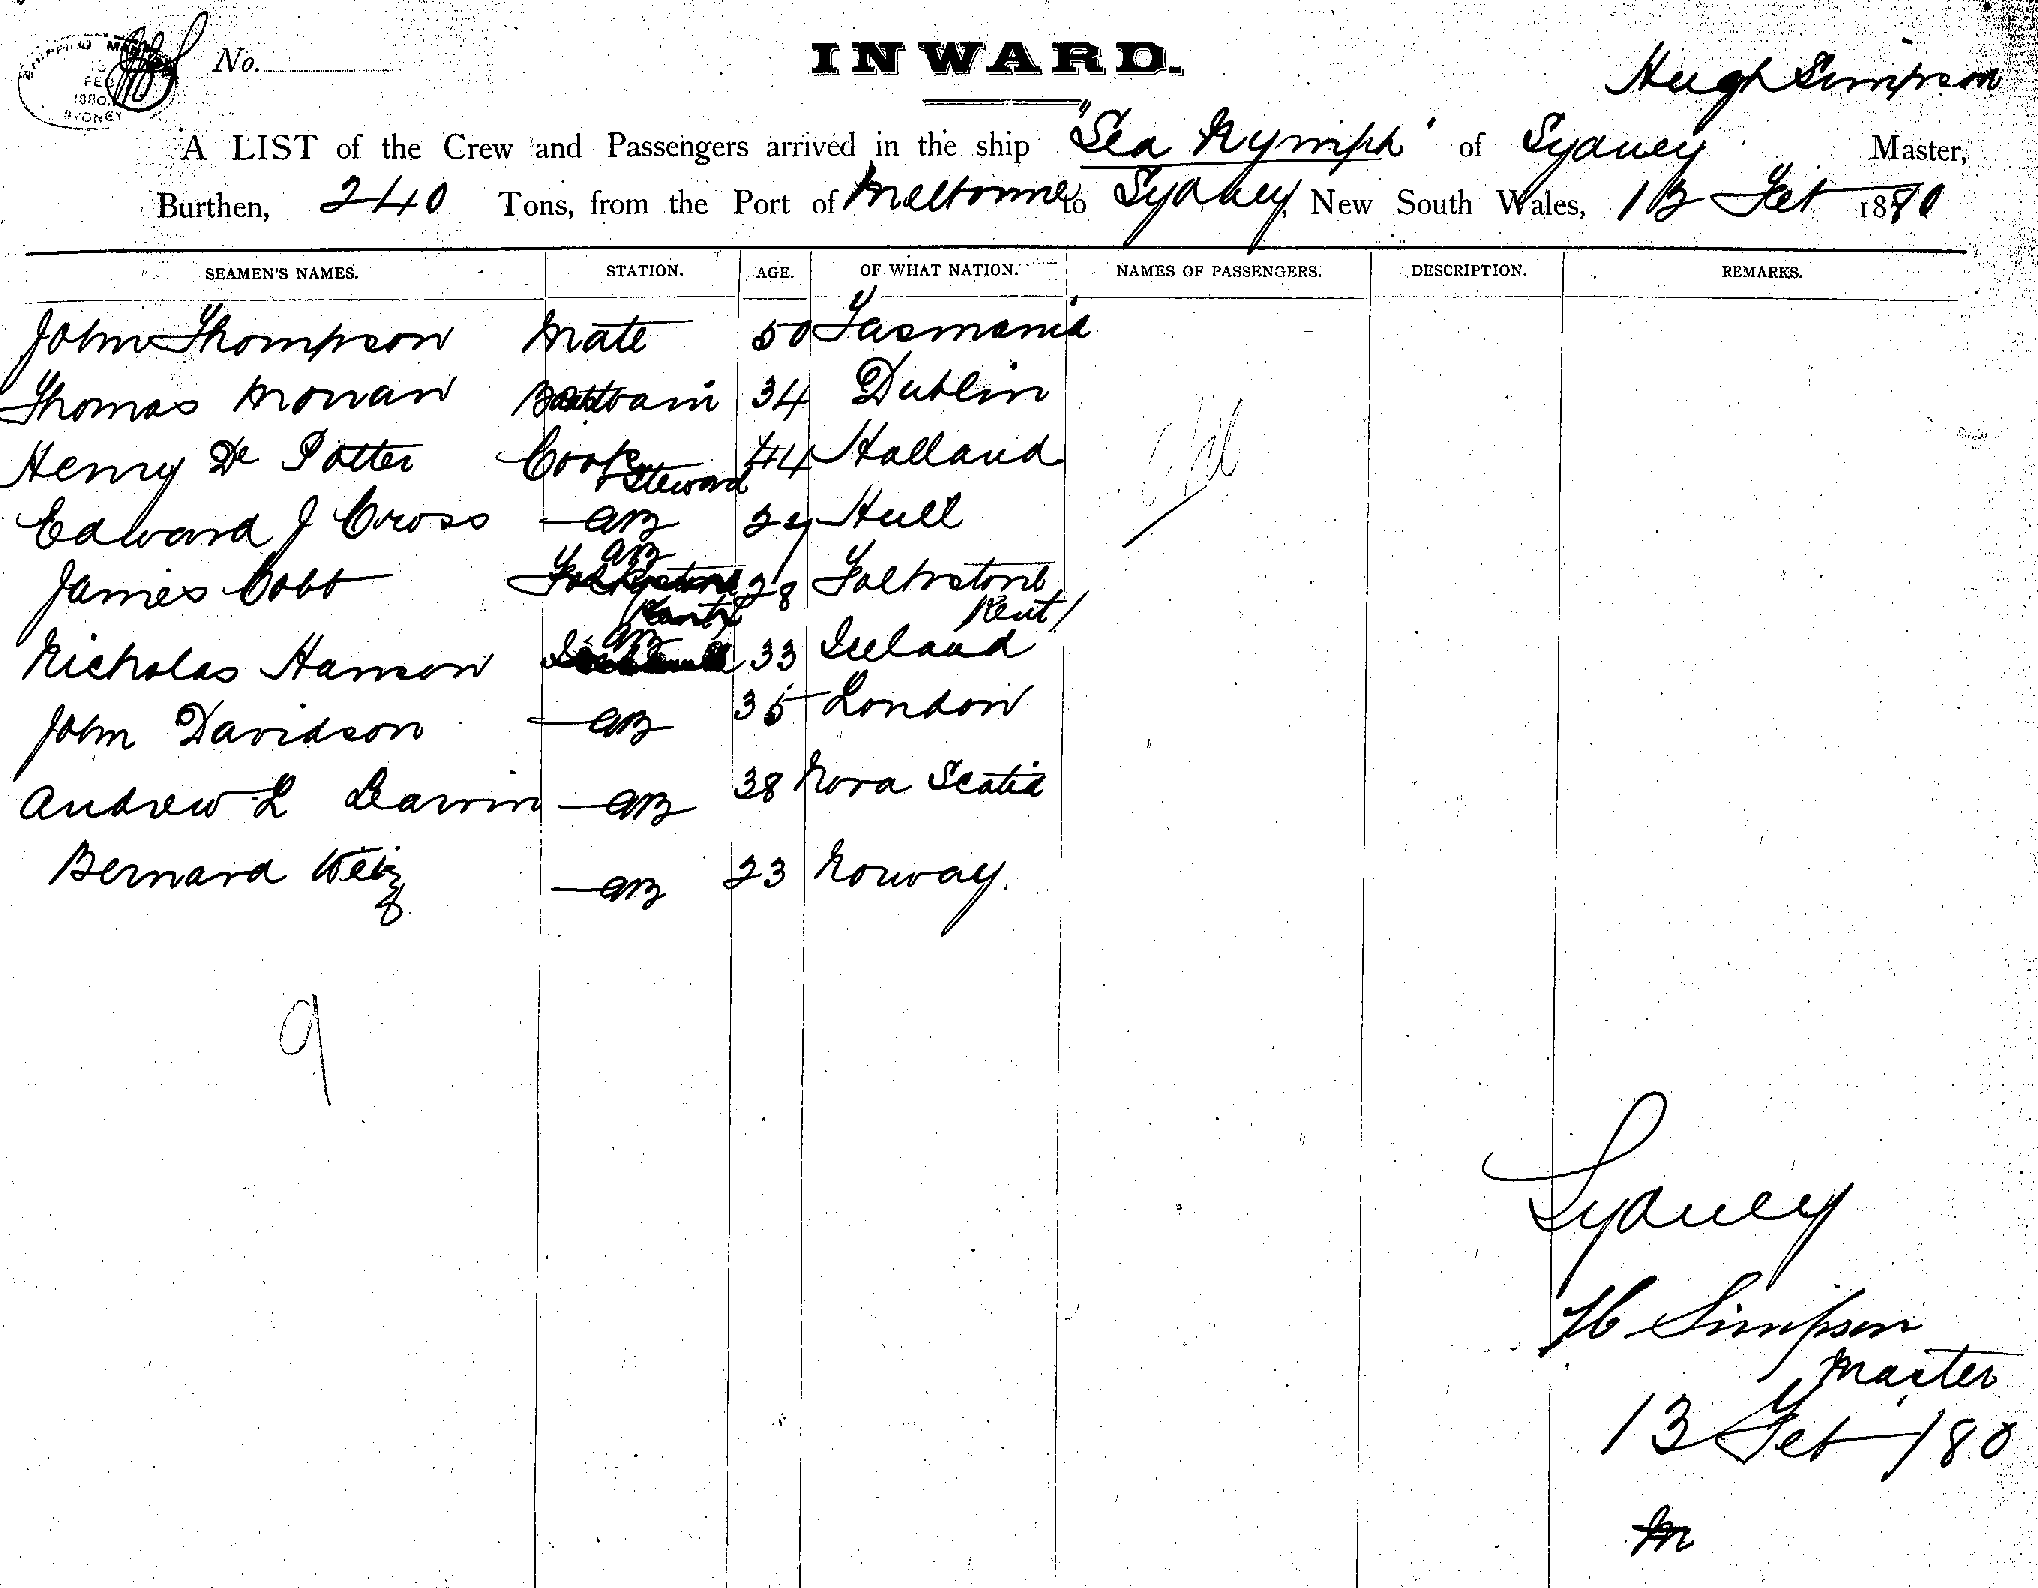 SHIPPING MAS
FEB
1880
SYDNEY
No.
INWARD.
Hugh Simpson
A LIST of the Crew and Passengers arrived in the ship "Sea Nymph" of Sydney Master,
Burthen, 240 Tons, from the Port of Melbourne to Sydney, New South Wales, 13 Feb 1880
SEAMEN'S NAMES. STATION. AGE. OF WHAT NATION. NAMES OF PASSENGERS. DESCRIPTION. REMARKS.
John Thompson Mate 50 Tasmania
Thomas 34 Dublin
Henry De Potter Cook & Steward 44 Holland
Edward J Cross AB 29 Hull
James Cobb AB 28 Folkstone Kent
Nicholas Hanson AB 33 Ireland
John Davidson AB 35 London
Andrew L AB 38 Nova Scotia
Bernard AB 23 Norway.
9
Sydney
H Simpson
Master
13 Feb /80